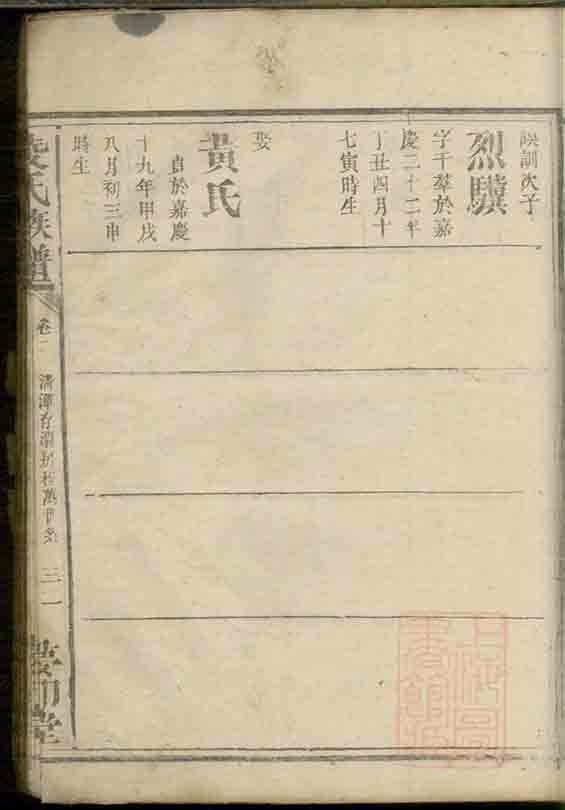 訓次子
烈驥
字千羣於嘉
慶二十二年
丁丑四月十
七寅時生
娶
黃氏
貞於嘉慶
十九年甲戌
八月初三申
時生
氏族譜
卷二
三一
堂
上海圖書館藏